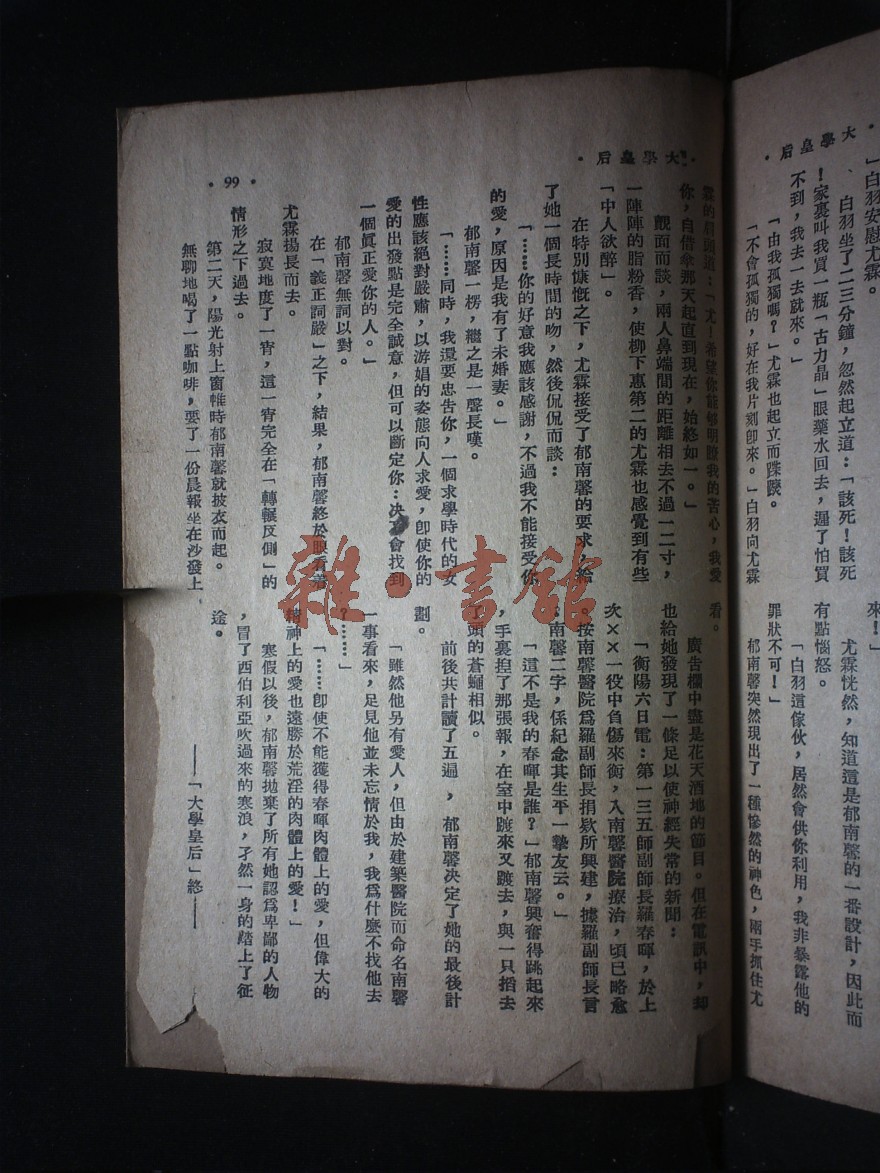 大學皇后
」白羽安慰尤霖。
白羽坐了二三分鐘，忽然起立道：「該死！該死
！家裏叫我買一瓶「古力晶」眼藥水回去，遲了怕買
不到，我去一去就來。」
「由我孤獨嗎？」尤霖也起立而踩蹤。
「不會孤獨的，好在我片刻卽來。」白羽向尤霖
來！」
尤霖恍然，知道這是郁南馨的一番設計，因此而
有點惱怒。
「白羽這傢伙，居然會供你利用，我非暴露他的
罪狀不可！」
郁南馨突然現出了一種慘然的神色，兩手抓住尤
•大學皇后•
霖的肩頭道：「尤！希望你能够明瞭我的苦心，我愛
你，自借傘那天起直到現在，始終如一。」
覿面而談，兩人鼻端間的距離相去不過一二寸，
一陣陣的脂粉香，使柳下惠第二的尤霖也感覺到有些
「中人欲醉」。
在特別慷慨之下，尤霖接受了郁南馨的要求，給
了她一個長時間的吻，然後侃侃而談：
「……你的好意我應該感謝，不過我不能接受你
的愛，原因是我有了未婚妻。」
郁南馨一楞，繼之是一聲長嘆。
「……同時，我還要忠告你，一個求學時代的女
性應該絕對嚴肅，以游娼的姿態向人求愛，卽使你的
愛的出發點是完全誠意，但可以斷定你：决不會找到
一個眞正愛你的人。」
郁南馨無詞以對。
在「義正詞嚴」之下，結果，郁南馨終於眼看着
尤霖揚長而去。
寂寞地度了一宵，這一宵完全在「轉輾反側」的
情形之下過去。
第二天，陽光射上窗帷時郁南馨就披衣而起。
無聊地喝了一點咖啡，要了一份晨報坐在沙發上
看。
廣告欄中盡是花天酒地的節目。但在電訊中，却
也給她發現了一條足以使神經失常的新聞：
「衡陽六日電：第一三五師副師長羅春暉，於上
次××一役中負傷來衡，入南馨醫院療治，頃已略愈
。按南馨醫院爲羅副師長捐欵所興建，據羅副師長言
：南馨二字，係紀念其生平一摯友云。」
「這不是我的春暉是誰？」郁南馨興奮得跳起來
，手裏揑了那張報，在室中踱來又踱去，與一只掐去
了頭的蒼蠅相似。
前後共計讀了五遍，郁南馨决定了她的最後計
劃。
「雖然他另有愛人，但由於建築醫院而命名南馨
一事看來，足見他並未忘情於我，我爲什麼不找他去
？……」
「……卽使不能獲得春暉肉體上的愛，但偉大的
精神上的愛也遠勝於荒淫的肉體上的愛！」
寒假以後，郁南馨拋棄了所有她認爲卑鄙的人物
，冒了西伯利亞吹過來的寒浪，孑然一身的踏上了征
途。
——「大學皇后」終——
•99•
雜·書館